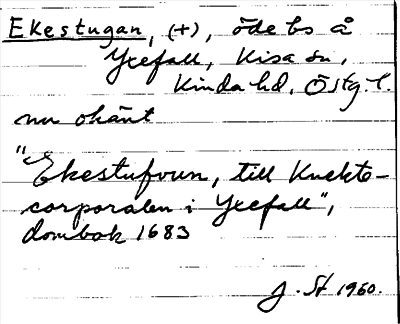 Ekestugan, (+), öde bs å
Yxefall, Kisa sn,
Kinda hd. Östg. l.
nu okänt
"Ekestufvun, till Knekte-
corporalen i Yxefall",
dombok 1683
J. St 1960.